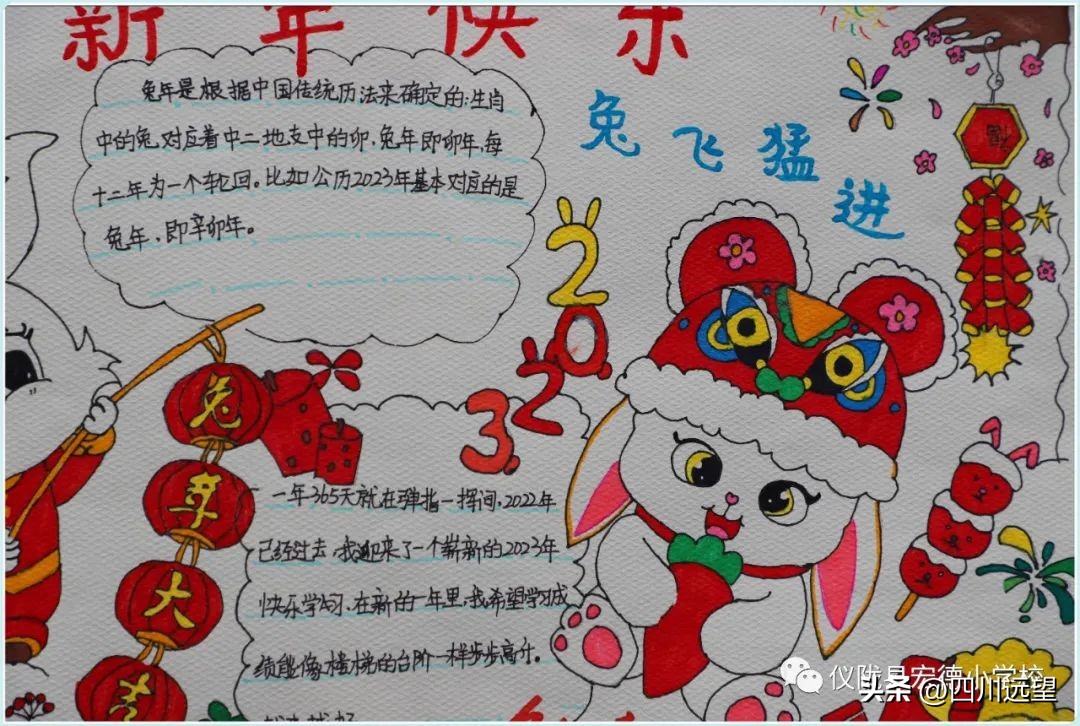 新年快乐
兔年是根据中国传统历法来确定的;生肖
中的兔,对应着中二地支中的卯,兔年即卯年,每
十二年为一个轮回。比如公历2023年基本对应的是
兔年,即辛卯年。
兔飞猛进
2023
福
兔年大吉
一年365天就在弹指一挥间,2022年
已经过去,我迎来了一个崭新的2023年
快乐学习,在新的一年里,我希望学习成
绩能像楼梯的台阶一样步步高升。
仪陇县宏德小学校
头条 @四川远望